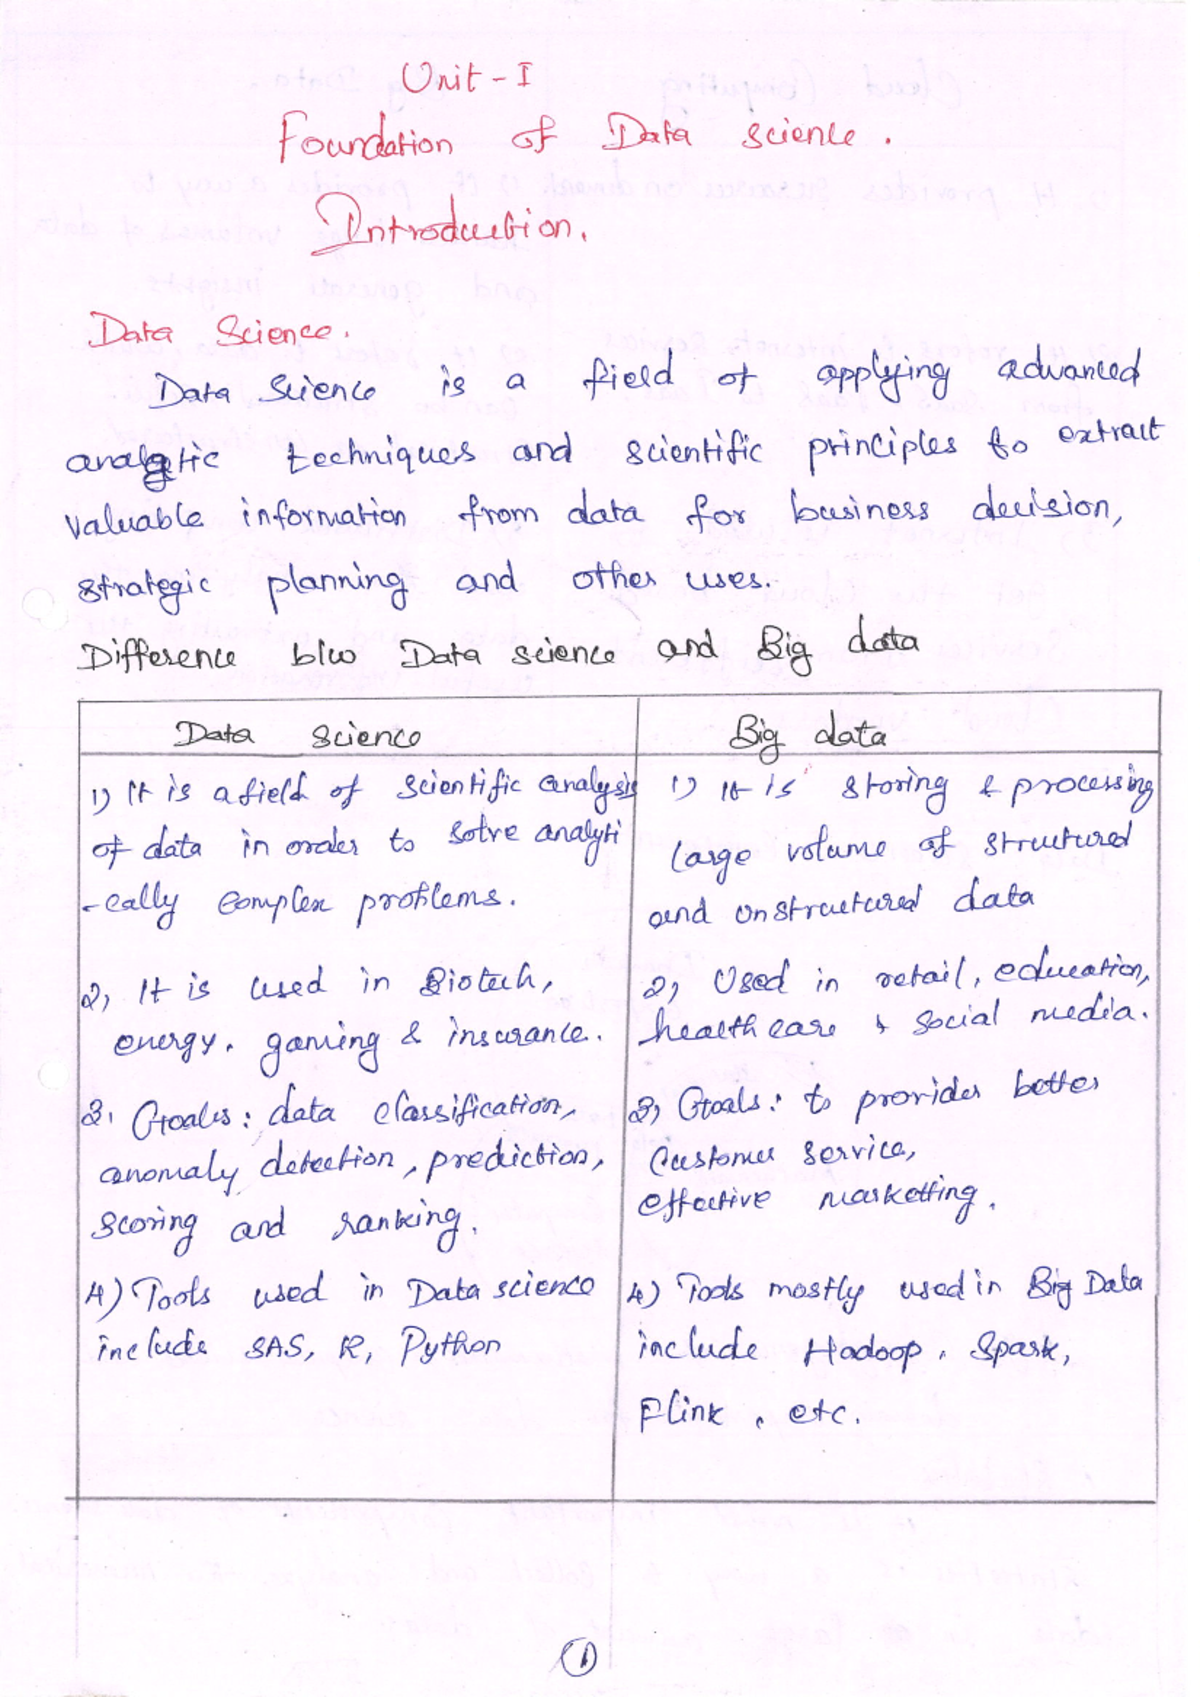 Unit - I
Foundation of Data science.
Introduction.
Data Science.
Data Science is a field of applying advanced
analytic techniques and scientific principles to extract
valuable information from data for business decision,
strategic planning and other uses.
Difference b/w Data science and Big data
Data science
1) It is a field of scientific analysis
of data in order to solve analyti
-cally complex problems.
2, It is used in Biotech,
energy, gaming & insurance.
3. Goals: data classification,
anomaly detection, prediction,
scoring and ranking.
4) Tools used in Data science
include SAS, R, Python
Big data
1) It is storing & processing
large volume of structured
and unstructured data
2, Used in retail, education,
health care & social media.
3, Goals: to provider better
Customer service,
effective marketting.
4) Tools mostly used in Big Data
include Hadoop, Spark,
Flink, etc.
1